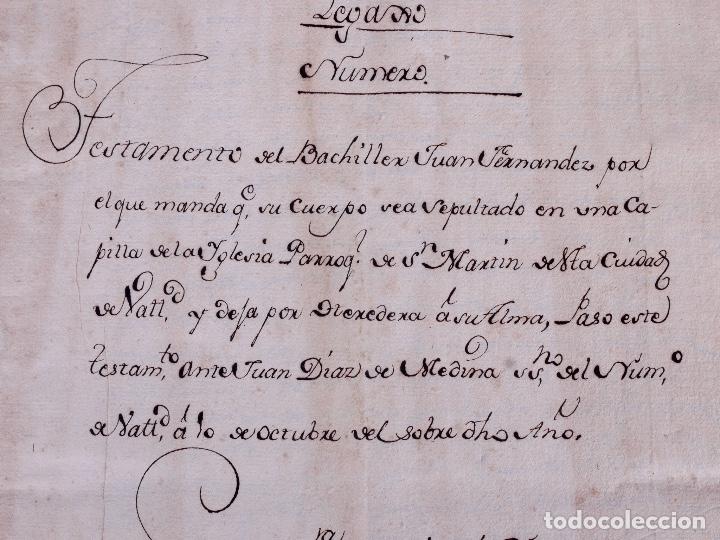 Legaxo
Numero.
Testamento del Bachiller Juan Fernandez por
el que manda q.e su cuerpo sea sepultado en una Ca-
pilla de la Yglesia Parroq.l de S.n Martin de dha Ciudad
de Vall.d y deja por Heredera à su Alma, Paso este
testam.to ante Juan Diaz de Medina ss.no del Num.o
de Vall.d à 10 de octubre del sobre dho Año.
todocoleccion.net